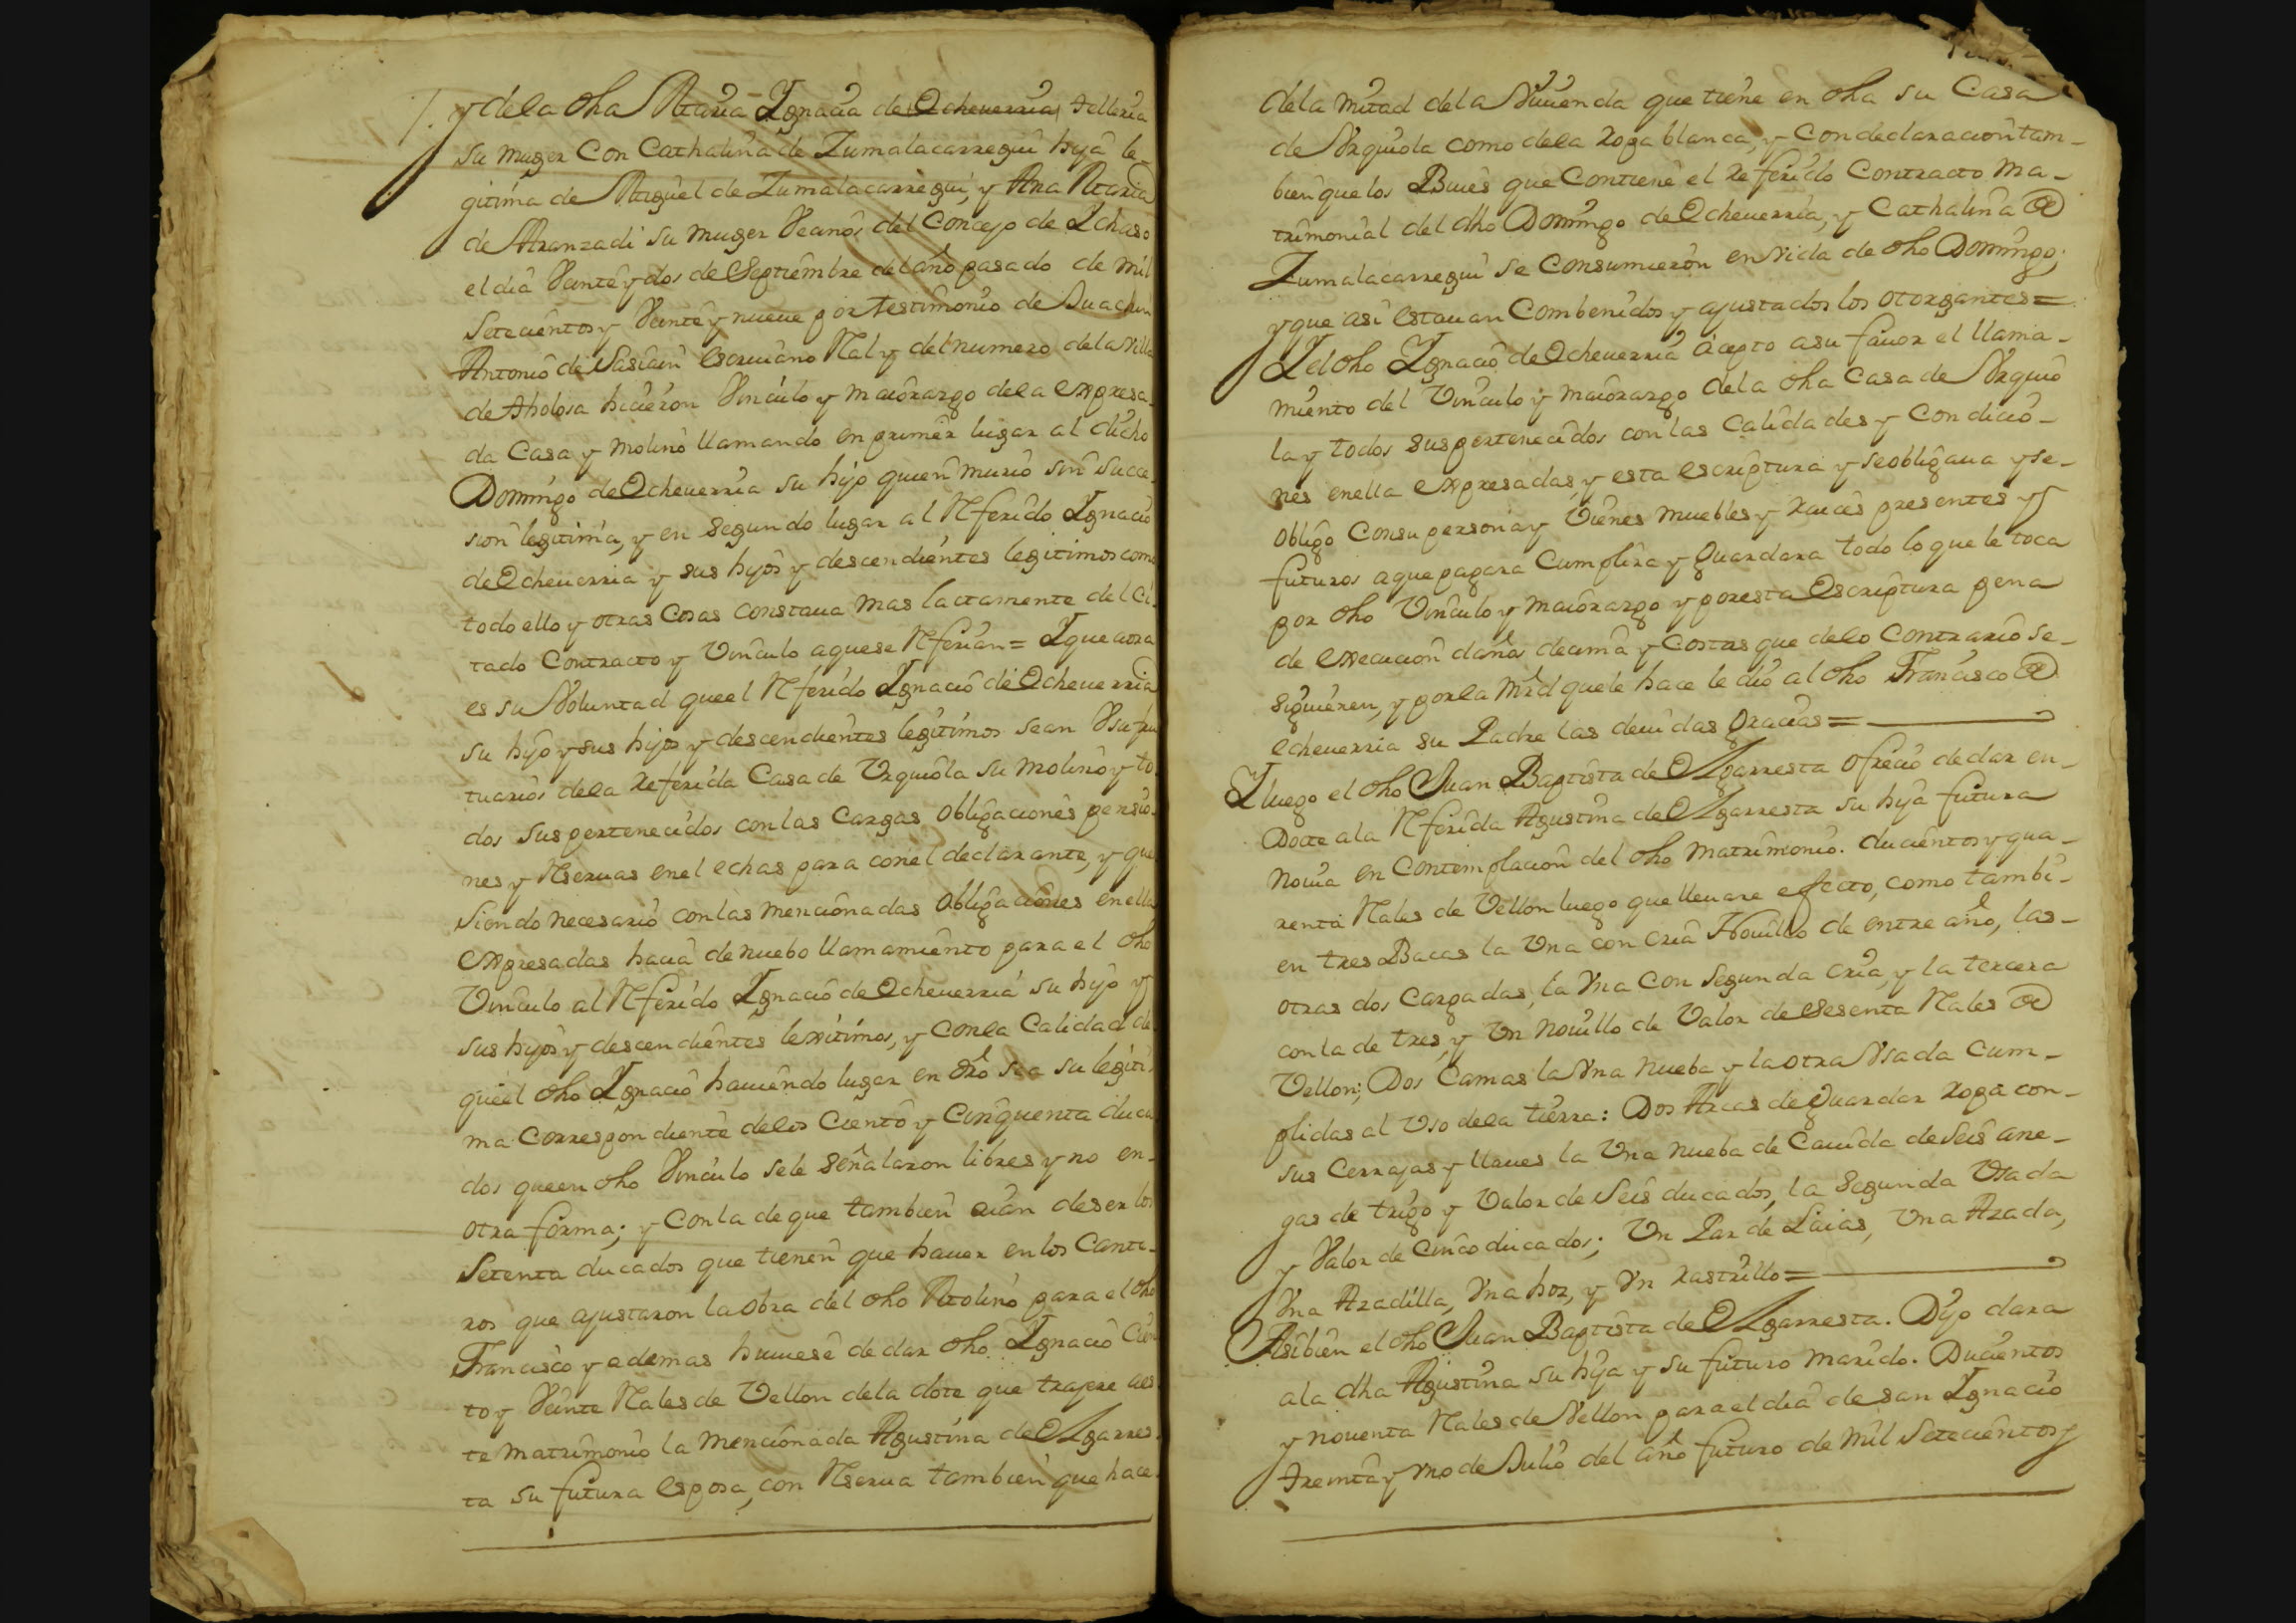 y de la dha Maria Ignacia de Echeuerria Telleria
su muger Con Cathalina de Zumalacarregui hija le-
gitima de Miguel de Zumalacarregui, y Ana Maria
de Aranzadi su muger Vecinos del Concejo de Ichaso
el dia Veinte y dos de Septiembre del año pasado de mil
Setecientos y Veinte y nueue por testimonio de Juachin
Antonio de Sasiain escriuano Rl y del numero de la Villa
de tholosa hicieron Vinculo y maiorazgo de la expresa-
da Casa y molino llamando en primer lugar al dicho
Domingo de Echeuerria su hijo quien murio sin succe-
sion legitima, y en segundo lugar al Referido Ignacio
de Echeuerria y sus hijos y descendientes legitimos como
todo ello y otras Cosas constaua mas lactamente del ci-
tado Contracto y Vinculo a que se Referian= Y que aora
es su Voluntad que el Referido Ignacio de Echeuerria
su hijo y sus hijos y descendientes legitimos sean Vsufru
tuarios de la referida Casa de Vrquiola su molino y to-
dos sus pertenecidos con las Cargas obligaciones pensio-
nes y Reseruas en el echas para con el declarante, y que
siendo necesario con las mencionadas obligaciones en ella
expresadas hacia de nuebo llamamiento para el dho
Vinculo al Referido Ignacio de Echeuerria su hijo y
sus hijos y descendientes lexitimos, y con la Calidad de
que el dho Ignacio hauiendo lugar en dro sea su legiti-
ma Correspondiente de los Ciento y Cinquenta duca
dos que en dho Vinculo se le señalaron libres y no en-
otra forma; y Con la de que tambien aian de ser los
Setenta ducados que tienen que hauer en los Cante-
ros que ajustaron la obra del dho Molino para el dho
Francisco y ademas huuiese de dar dho Ignacio Cien
to y Veinte Rales de Vellon de la dote que trajere a es
te matrimonio la mencionada Agustina de Elgarres-
ta su futura esposa, con Reserua tambien que hace
de la mitad de la Viuienda que tiene en dha su Casa
de Vrquiola como de la ropa blanca, y Con declaracion tam-
bien que los Buies que Contiene el referido Contracto ma-
trimonial del dho Domingo de Echeuerria, y Cathalina de
Zumalacarregui se Consumieron en Vida de dho Domingo;
y que asi estauan Combenidos y ajustados los otorgantes=
Y el dho Ignacio de Echeuerria acepto a su fauor el llama-
miento del Vinculo y maiorazgo de la dha Casa de Vrquio
la y todos sus pertenecidos con las Calidades y Condicio-
nes en ella expresadas, y esta escriptura y se obligaua y se-
obligo Con su persona y Vienes muebles y raices presentes y
futuros a que pagara Cumplira y Guardara todo lo que le toca
por dho Vinculo y maiorazgo y por esta Escriptura pena
de execucion daños decima y Costas que de lo Contrario se-
siguieren, y por la mrd que le hace le dio al dho Francisco de
echeuerria su Padre las deuidas Gracias=
Y luego el dho Juan Baptista de Elgarresta ofrecio de dar en-
Docte a la Referida Agustina de Elgarresta su hija futura
Nouia en Contemplacion del dho matrimonio. ducientos y qua-
renta Rales de Vellon luego que lleuare efecto, como tambi-
en tres Bacas la Vna con cria Nouillo de entre año, las-
otras dos Cargadas, la Vna Con segunda cria, y la tercera
con la de tres, y Vn Nouillo de Valor de sesenta Rales de
Vellon; Dos Camas la Vna nueba y la otra Vsada Cum-
plidas al Vso de la tierra: Dos Arcas de Guardar ropa con-
sus Cerrajas y llaues la Vna nueba de Cauida de seis ane-
gas de trigo y Valor de seis ducados, la segunda Vsada
y Valor de Cinco ducados; Vn Par de Laias, Vna Azada,
Vna Azadilla, Vna hoz, y Vn rastrillo=
Asibien el dho Juan Baptista de Elgarresta. Dijo dara
a la dha Agustina su hija y su futuro marido. Ducientos
y nouenta Rales de Vellon para el dia de san Ignacio
treinta y vno de Julio del año futuro de mil Setecientos y